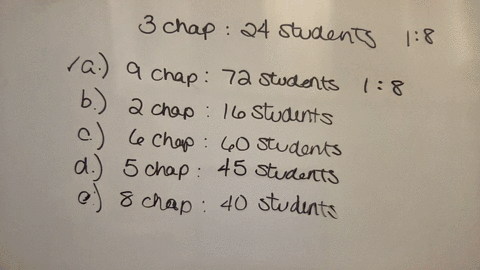 3 chap : 24 students 1:8
/a.) 9 chap : 72 students 1 : 8
b.) 2 chap : 16 students
c.) 6 chap : 60 students
d.) 5 chap : 45 students
e.) 8 chap : 40 students